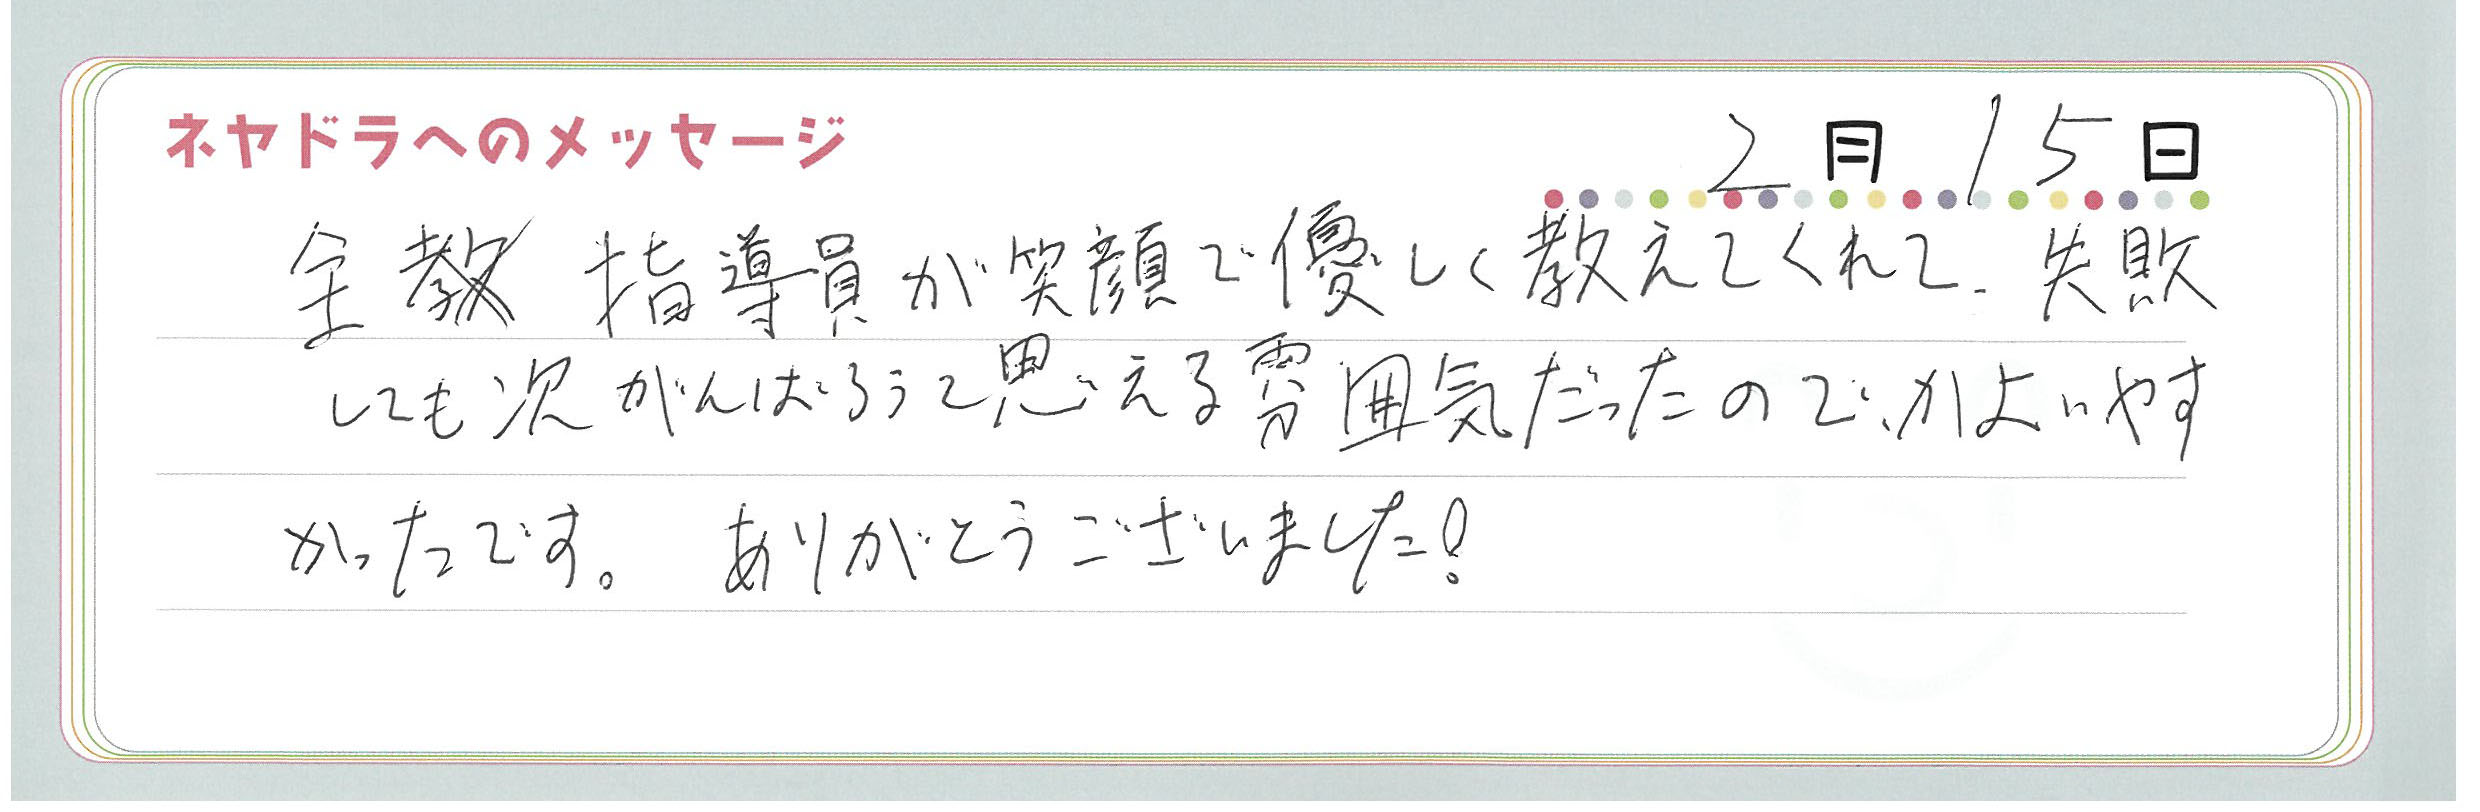 ネヤドラへのメッセージ
2月15日
全教 指導員が笑顔で優しく教えてくれて、失敗
しても次がんばろうと思える雰囲気だったので、かよいやす
かったです。 ありがとうございました!